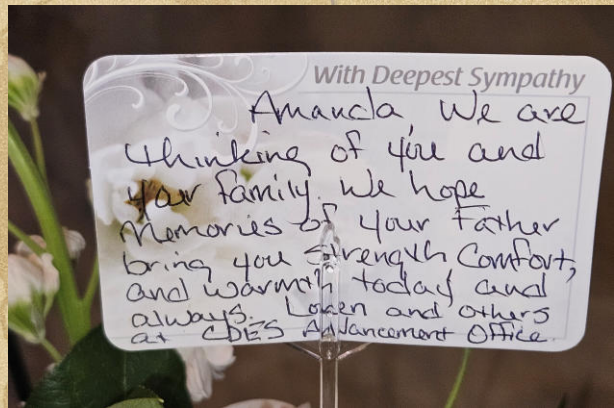 With Deepest Sympathy
Amanda, We are
thinking of you and
your family. We hope
Memories of your Father
bring you strength Comfort,
and warmth today and
always. Loren and others
at CDES Advancement Office.